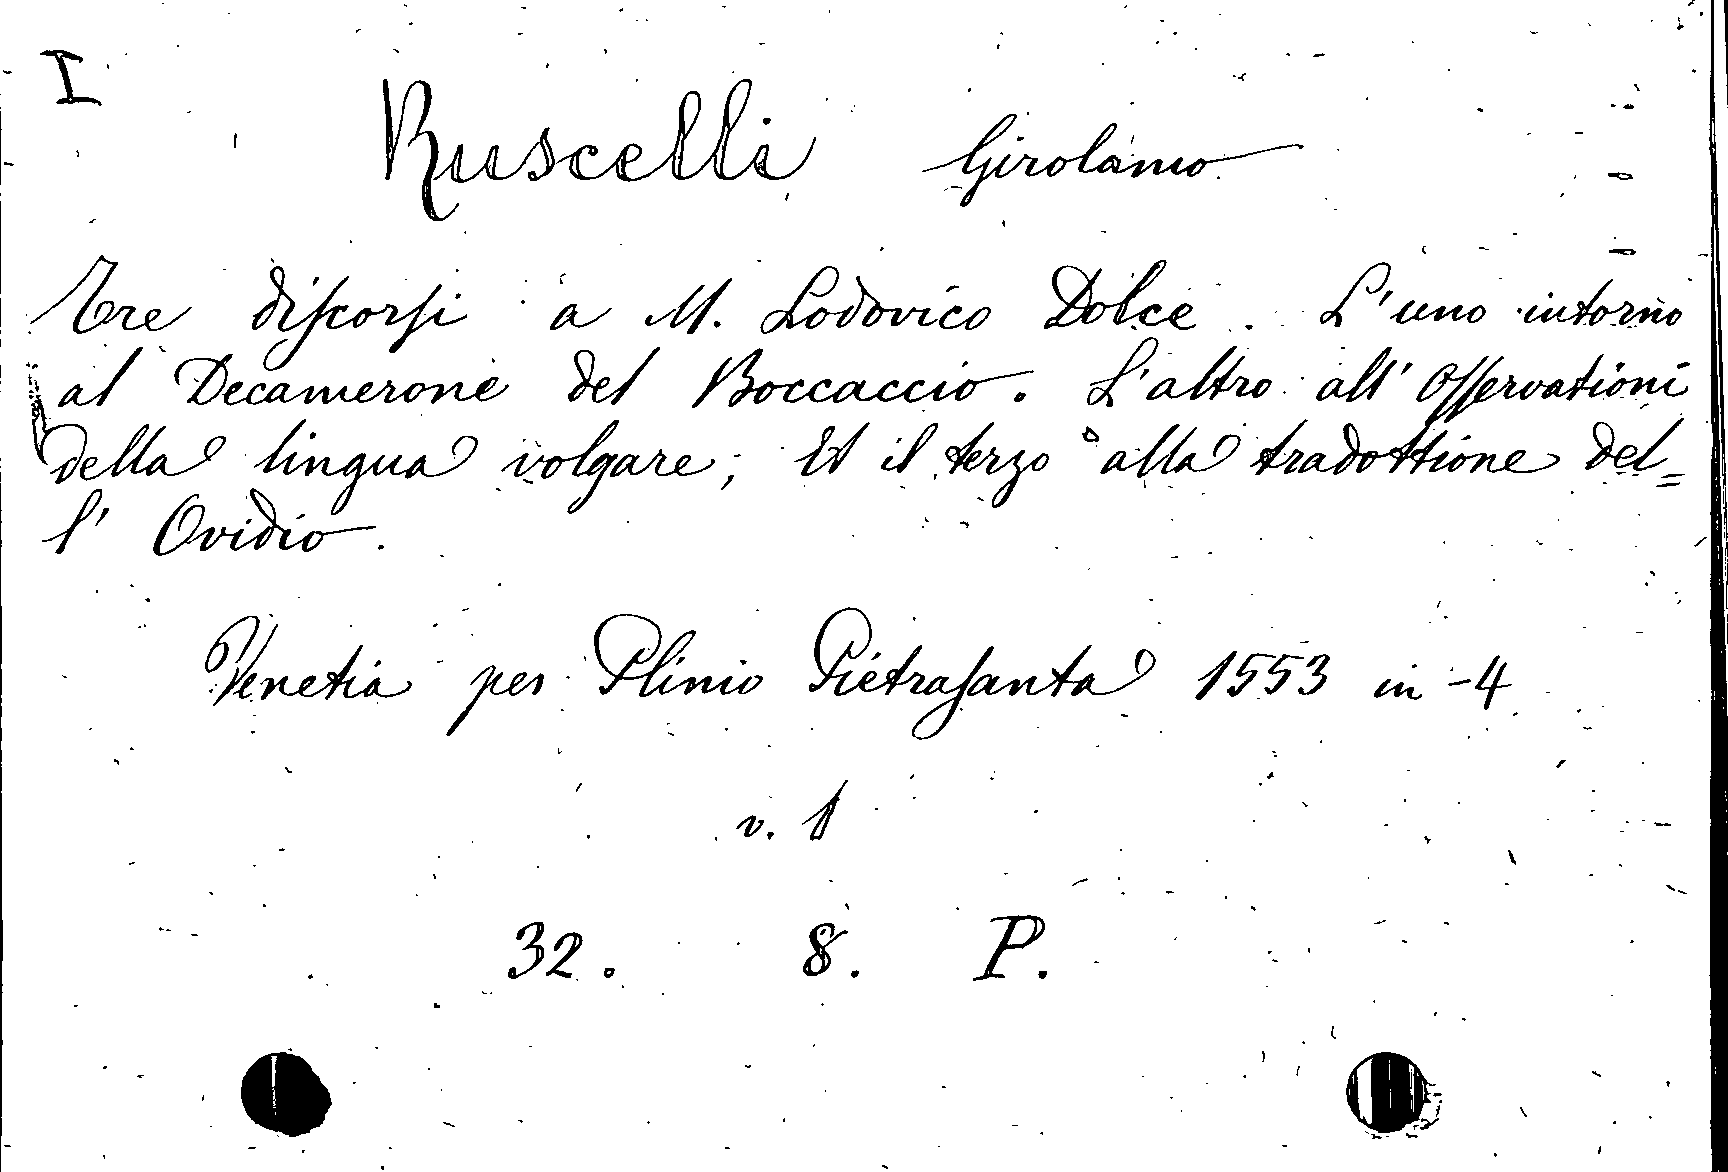 I
Ruscelli Girolamo
Tre diſcorſi a M. Lodovico Dolce. L'uno intorno
al Decamerone del Boccaccio. L'altro all' Oſſervationi
della lingua volgare; Et il terzo alla tradottione del=
l' Ovidio.
Venetia per Plinio Pietraſanta 1553 in -4
v. 1
32. 8. P.